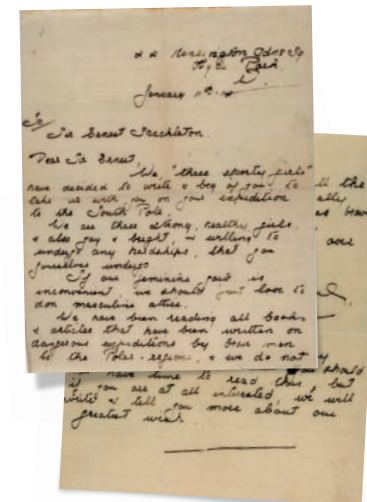 Kensington Gdns Sq
Hyde Park
January 11th
To/
Sir Ernest Shackleton.
Dear Sir Ernest,
We "three sporty girls"
have decided to write & beg of you, to
take us with you on your expedition
to the South Pole.
We are three strong, healthy girls,
& also gay & bright, & willing to
undergo any hardships, that you
yourselves undergo.
If our feminine garb is
inconvenient, we should just love to
don masculine attire.
We have been reading all books
& articles that have been written on
dangerous expeditions by brave men
to the Polar-regions, & we do not
all the
have
our
should
if you have time to read this, but
write & tell you are at all interested, we will
you more about our
greatest wish.